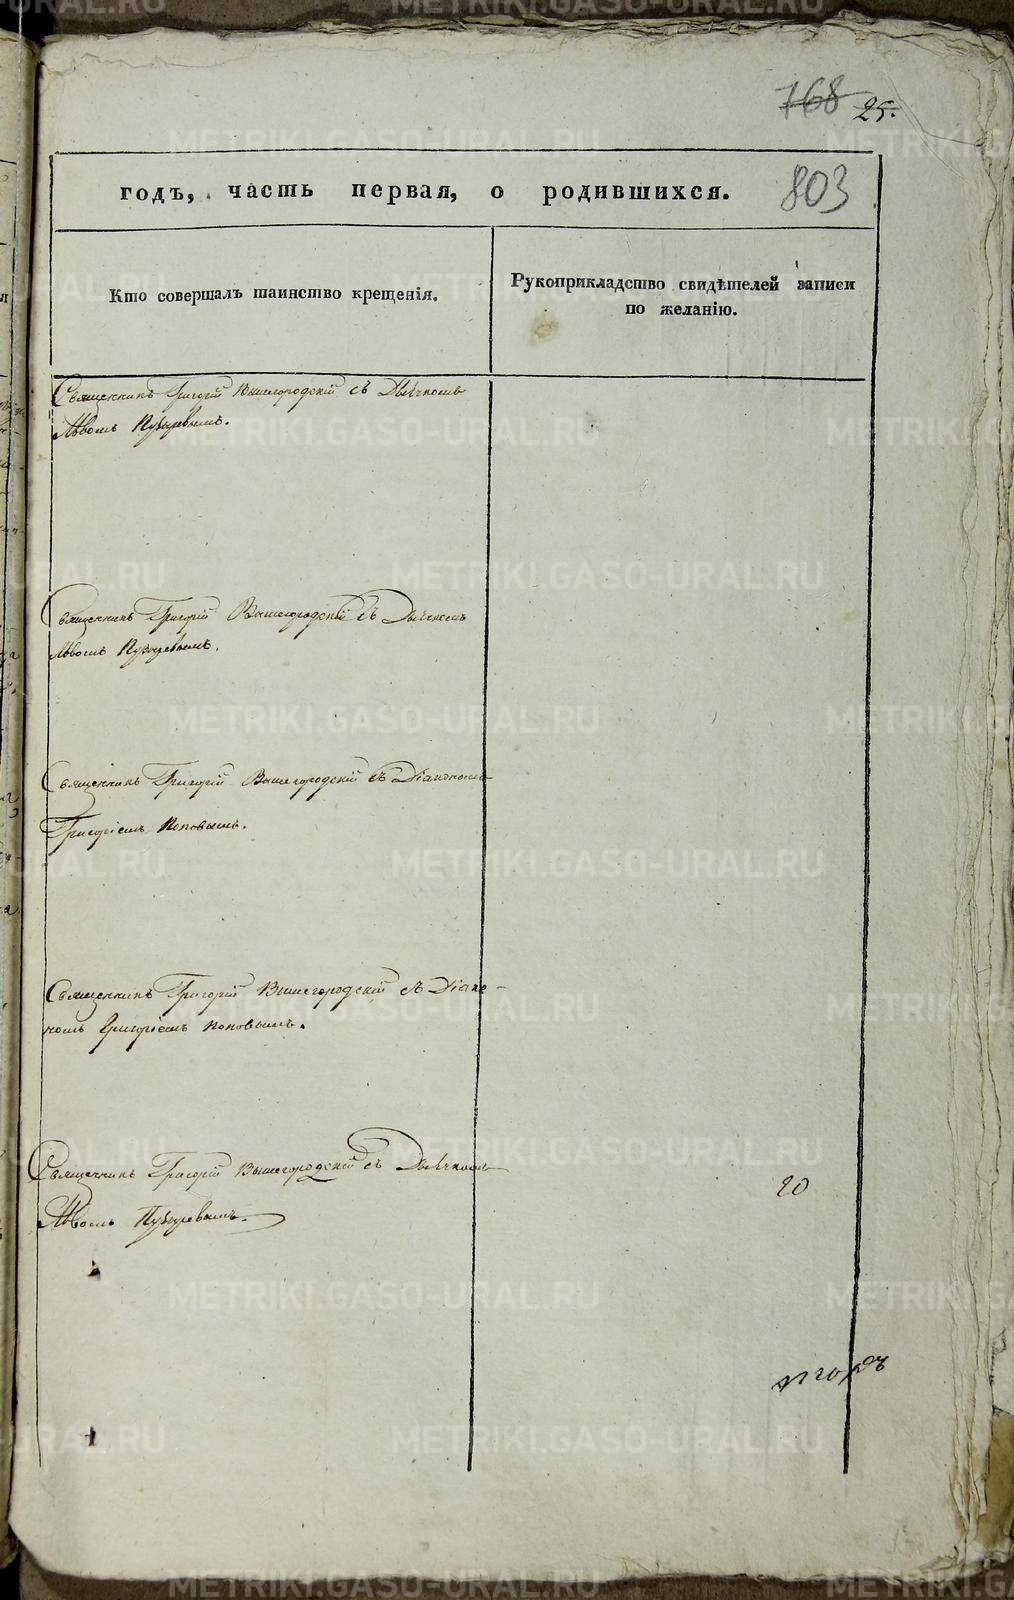 768 25.
годъ, часть первая, о родившихся. 803
Кто совершалъ таинство крещенія.
Рукоприкладство свидѣтелей записи
по желанію.
Священникъ Григорій Вышегородскій съ Дьячкомъ
Львомъ Пузыревымъ.
Священникъ Григорій Вышегородскій съ Дьячкомъ
Львомъ Пузыревымъ.
Священникъ Григорій Вышегородскій съ Діакономъ
Григоріемъ Поповымъ.
Священникъ Григорій Вышегородскій съ Діако-
номъ Григоріемъ Поповымъ.
Священникъ Григорій Вышегородскій съ Дьячкомъ
Львомъ Пузыревымъ.
20
METRIKI.GASO-URAL.RU